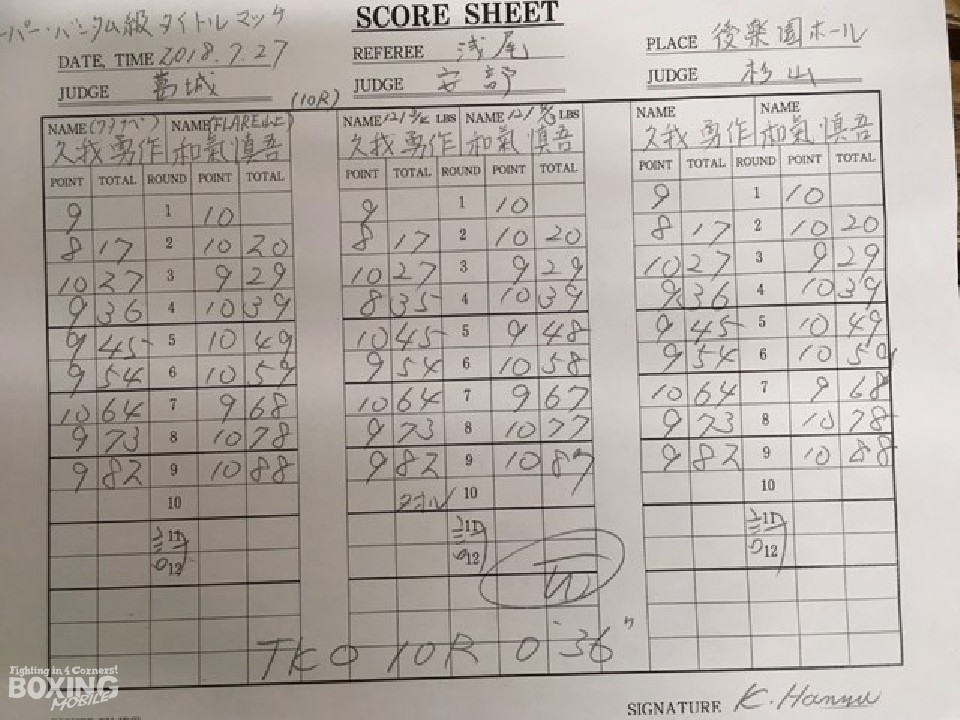 ーパー・バンタム級 タイトル マッチ
SCORE SHEET
DATE, TIME 2018.7.27
REFEREE 浅尾
PLACE 後楽園ホール
JUDGE 葛城
(10R)
JUDGE 安部
JUDGE 杉山
NAME (ワタナベ) NAME (FLARE山上)
NAME LBS NAME LBS
NAME NAME
久我勇作 和氣慎吾
久我勇作 和氣慎吾
久我勇作 和氣慎吾
POINT TOTAL ROUND POINT TOTAL
POINT TOTAL ROUND POINT TOTAL
POINT TOTAL ROUND POINT TOTAL
9 1 10
9 1 10
9 1 10
8 17 2 10 20
8 17 2 10 20
8 17 2 10 20
10 27 3 9 29
10 27 3 9 29
10 27 3 9 29
9 36 4 10 39
8 35 4 10 39
9 36 4 10 39
9 45 5 10 49
10 45 5 9 48
9 45 5 10 49
9 54 6 10 59
9 54 6 10 58
9 54 6 10 59
10 64 7 9 68
10 64 7 9 67
10 64 7 9 68
9 73 8 10 78
9 73 8 10 77
9 73 8 10 78
9 82 9 10 88
9 82 9 10 87
9 82 9 10 88
10
10
10
11
11
11
12
12
12
TKO 10R 0'36"
Fighting in 4 Corners!
BOXING
MOBILE
SIGNATURE K. Hannu